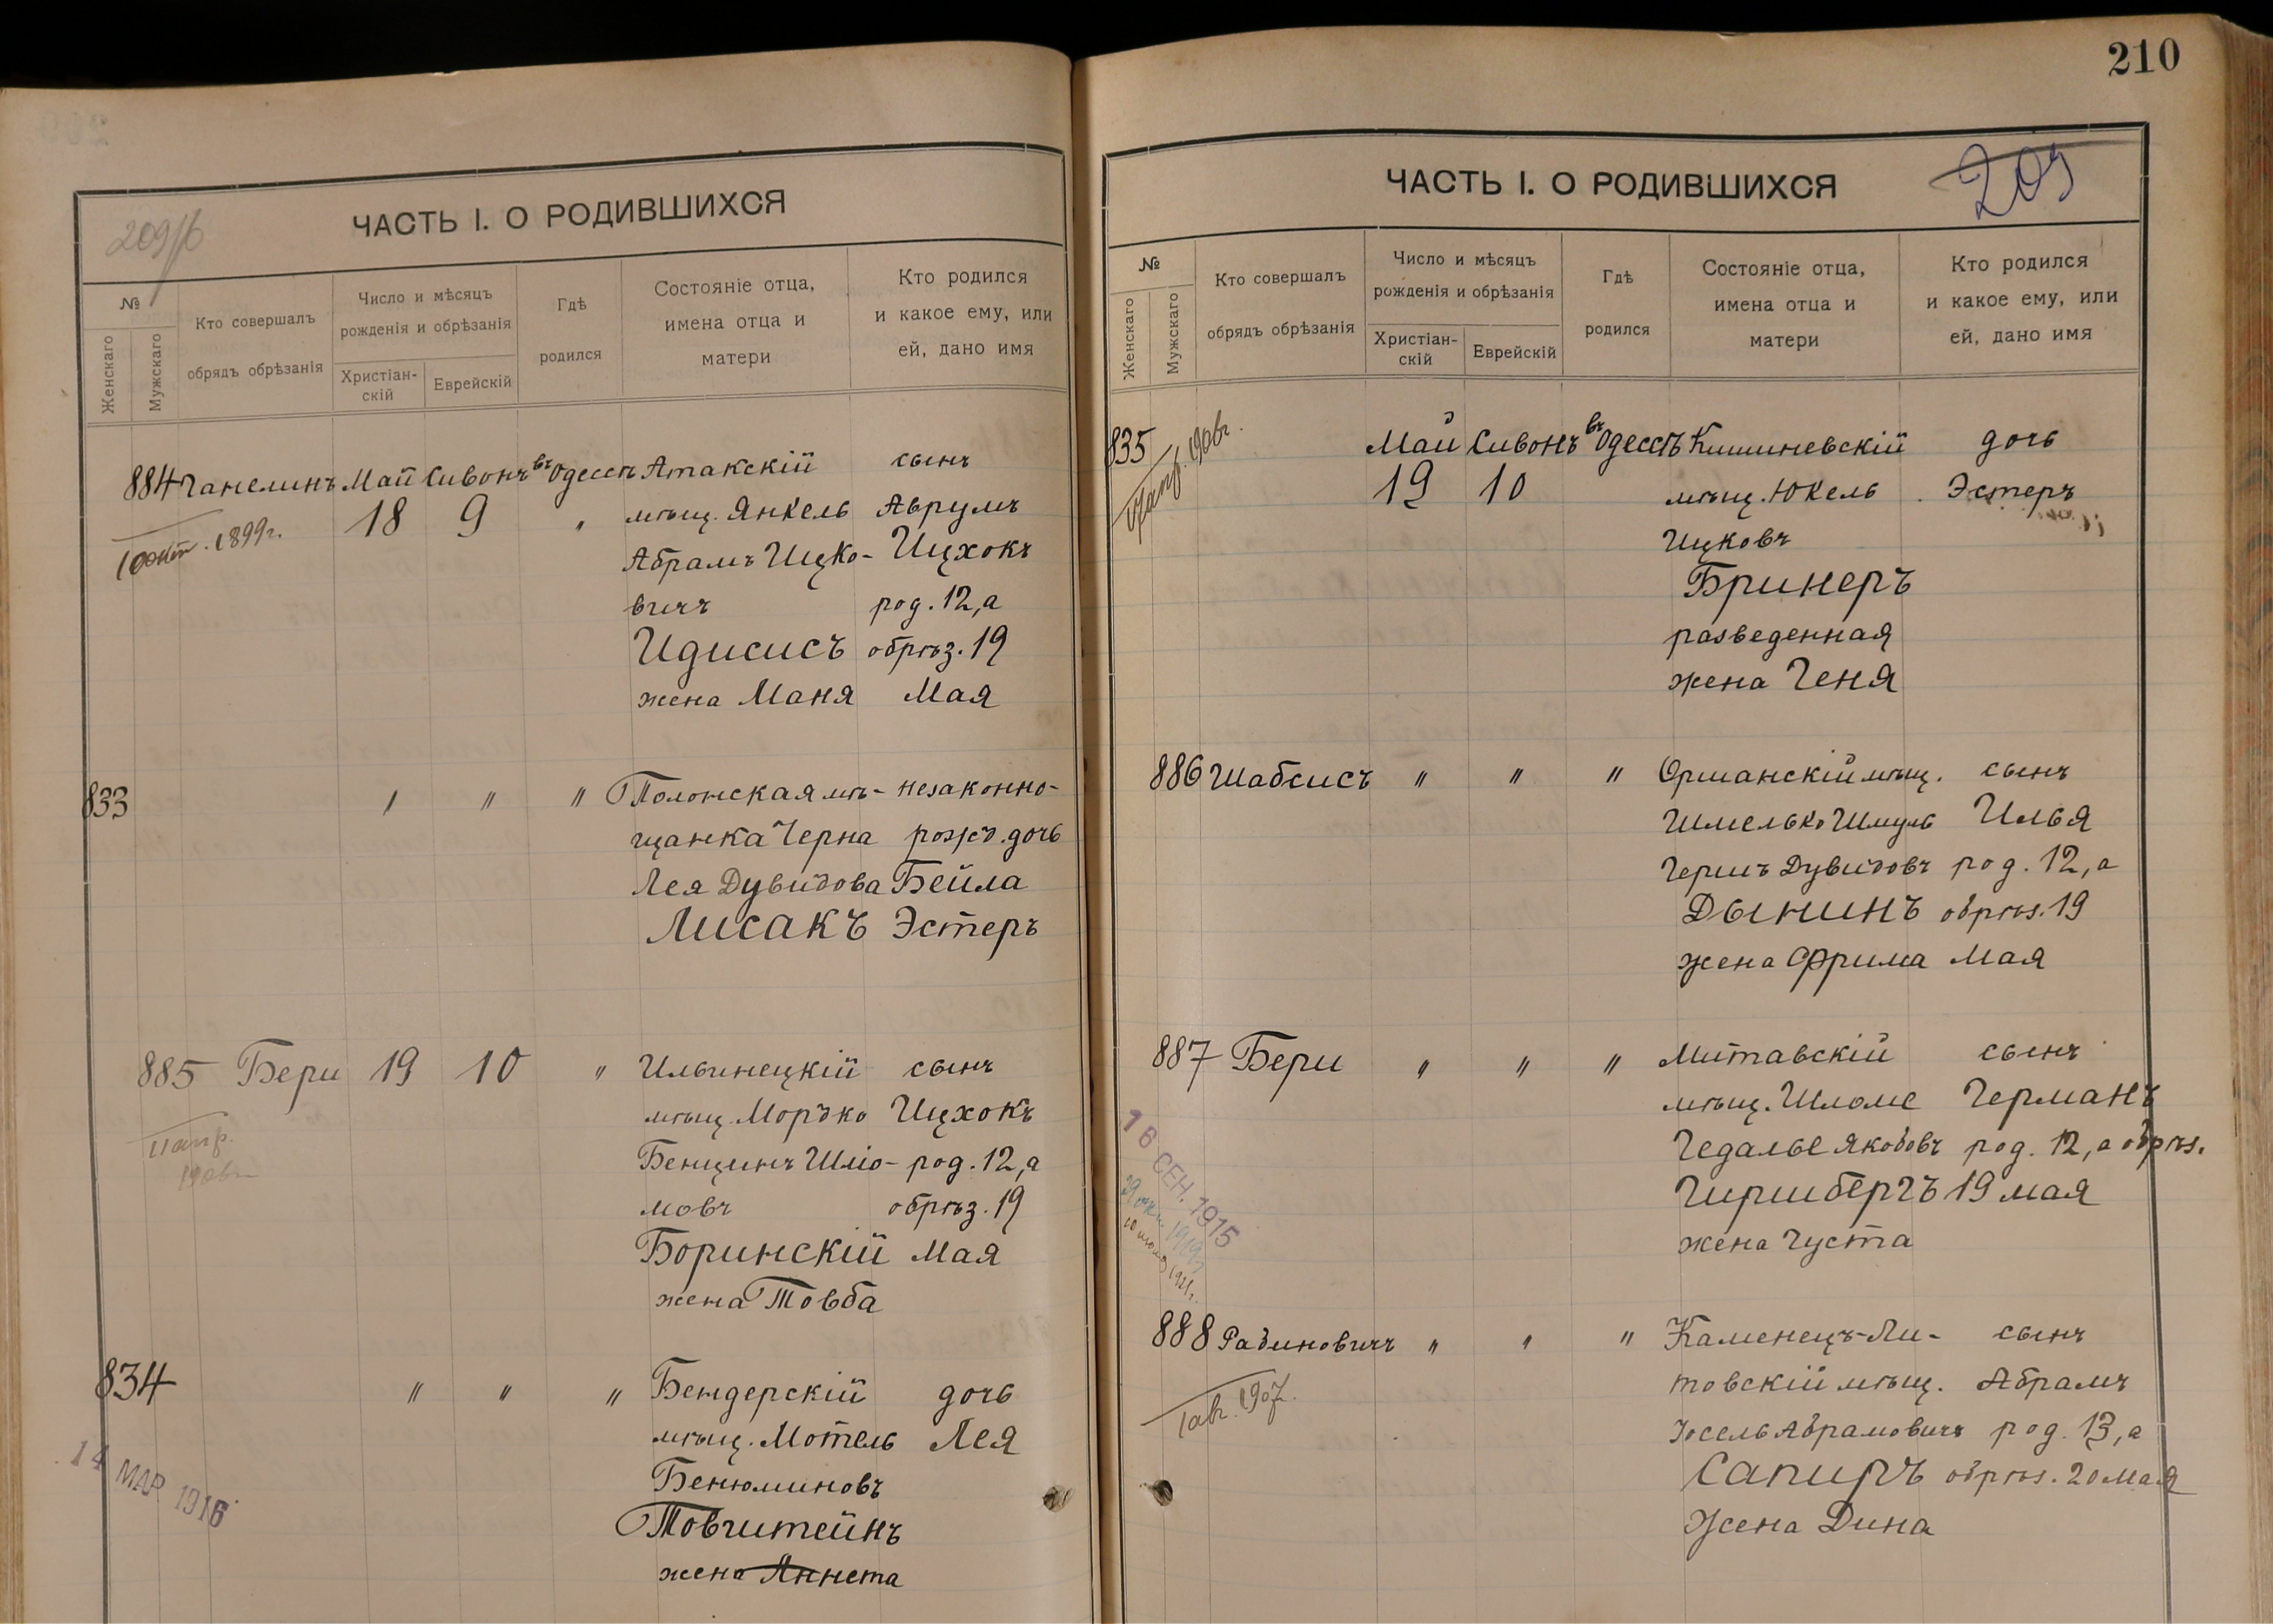 210
ЧАСТЬ I. О РОДИВШИХСЯ
209/б
№
Женскаго
Мужскаго
Кто совершалъ
обрядъ обрѣзанія
Число и мѣсяцъ
рожденія и обрѣзанія
Христіан-
скій
Еврейскій
Гдѣ
родился
Состояніе отца,
имена отца и
матери
Кто родился
и какое ему, или
ей, дано имя
884 Ганелинъ Май Сивонъ въ Одессѣ Атакскій сынъ
10 окт. 1899 г. 18 9 " мѣщ. Янкель Аврумъ
Абрамъ Ицко- Ицхокъ
вичъ род. 12, а
Идисисъ обрѣз. 19
жена Маня Мая
833 " " " Полонская мѣ- незаконно-
щанка Черна рожд. дочь
Лея Дувидова Бейла
Лисакъ Эстеръ
885 Бери 19 10 " Ильинецкій сынъ
11 апр. мѣщ. Мордко Ицхокъ
Бенцинъ Шлі о- род. 12, а
мовъ обрѣз. 19
Боринскій Мая
жена Товба
834 " " " Бендерскій дочь
мѣщ. Мотель Лея
14 МАР 1916 Бенюминовъ
Товштейнъ
жена Аннета
ЧАСТЬ I. О РОДИВШИХСЯ
209
№
Женскаго
Мужскаго
Кто совершалъ
обрядъ обрѣзанія
Число и мѣсяцъ
рожденія и обрѣзанія
Христіан-
скій
Еврейскій
Гдѣ
родился
Состояніе отца,
имена отца и
матери
Кто родился
и какое ему, или
ей, дано имя
835 Май Сивонъ въ Одессѣ Кишиневскій дочь
19 10 мѣщ. Юкель Эстеръ
Ицковъ
Бринеръ
разведенная
жена Геня
886 Шабсисъ " " " Оршанскій мѣщ. сынъ
Шмелько Шмуль Илья
Гершъ Дувидовъ род. 12, а
Дынинъ обрѣз. 19
жена Фрима Мая
887 Бери " " " Митавскій сынъ
мѣщ. Шломе Германъ
16 СЕН. 1915 Гедалье Якововъ род. 12, а обрѣз.
Гиршбергъ 19 мая
жена Густа
888 Рабиновичъ " " " Каменецъ-Ли- сынъ
1 авг. 1907. товскій мѣщ. Абрамъ
Іосель Абрамовичъ род. 13, а
Сапиръ обрѣз. 20 Мая
Жена Дина